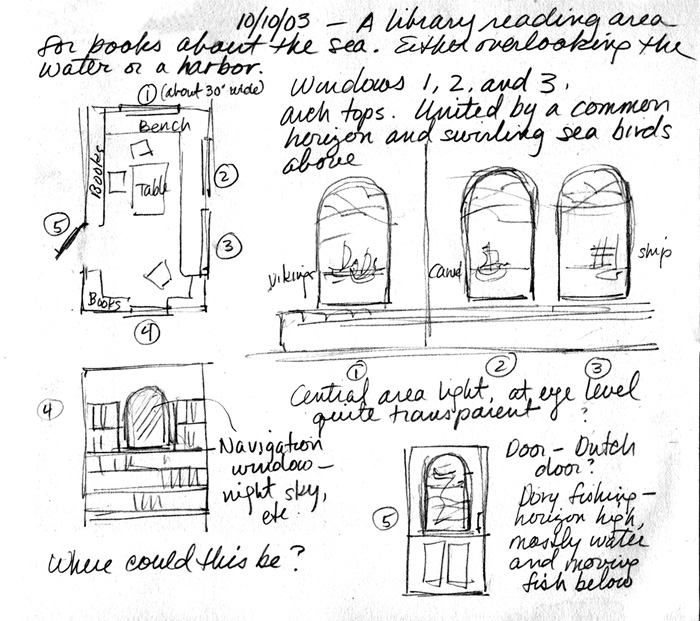 10/10/03 — A library reading area
for books about the sea. Either overlooking the
water or a harbor.
① (about 30" wide)
Windows 1, 2, and 3,
arch tops. United by a common
horizon and swirling sea birds
above
Bench
Books
Table
②
③
⑤
Books
④
Vikings
Canal
ship
①
②
③
Central area light, at eye level
quite transparent ?
④
Navigation
window —
night sky,
etc
Where could this be?
⑤
Door — Dutch
door?
Dory fishing —
horizon high,
mostly water
and moving
fish below